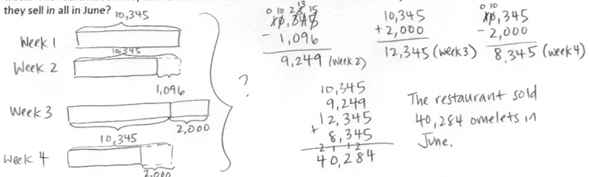 they sell in all in June?
10,345
Week 1
10,345
Week 2
1,096
Week 3
10,345
2,000
Week 4
2,000
?
0 10 2 13 15
10,345
- 1,096
9,249 (Week 2)
10,345
+ 2,000
12,345 (week 3)
0 10
10,345
- 2,000
8,345 (week 4)
10,345
9,249
12,345
+ 8,345
2 1 1 2
40,284
The restaurant sold
40,284 omelets in
June.